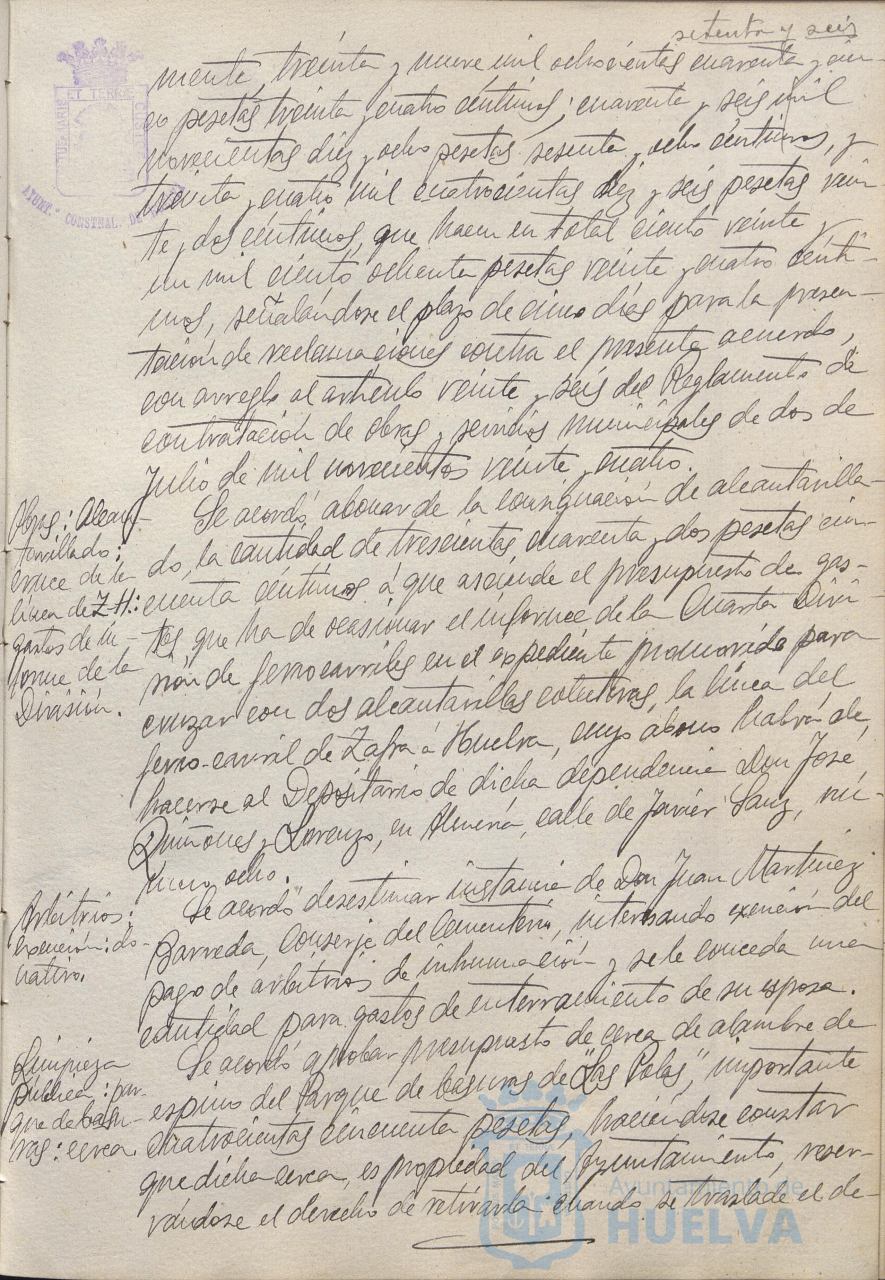 setenta y seis
mente, treinta y nueve mil ochocientas cuarenta y cin-
co pesetas treinta y cuatro céntimos; cuarenta y seis mil
novecientas diez y ocho pesetas sesenta y ocho céntimos, y
treinta y cuatro mil cuatrocientas diez y seis pesetas vein
te y dos céntimos, que hacen en total ciento veinte y
un mil ciento ochenta pesetas veinte y cuatro cénti-
mos, señalándose el plazo de cinco días para la presen-
tación de reclamaciones contra el presente acuerdo,
con arreglo al artículo veinte y seis del Reglamento de
contratación de obras y servicios municipales de dos de
Julio de mil novecientos veinte y cuatro.
Obras: Alcan-
tarillado:
cruce de la
línea de Z.H.:
gastos de in-
forme de la
División.
Se acordó abonar de la consignación de alcantarilla-
do, la cantidad de trescientas cuarenta y dos pesetas cin-
cuenta céntimos á que asciende el presupuesto de gas-
tos que ha de ocasionar el informe de la Cuarta Divi-
sión de ferrocarriles en el expediente promovido para
cruzar con dos alcantarillas colectoras, la línea del
ferro-carril de Zafra á Huelva, cuyo abono habrá de
hacerse al Depositario de dicha dependencia Don José
Quiñones y Lorenzo, en Almería, calle de Javier Sanz, nú-
mero ocho.
Arbitrios:
exención: do-
nativo.
Se acordó desestimar instancia de Don Juan Martínez
Barreda, Conserje del Cementerio, interesando exención del
pago de arbitrios de inhumación y se le conceda una
cantidad para gastos de enterramiento de su esposa.
Limpieza
pública: par-
que de basu-
ras: cerca.
Se acordó aprobar presupuesto de cerca de alambre de
espino del Parque de basuras de "Las Palas", importante
cuatrocientas cincuenta pesetas, haciéndose constar
que dicha cerca, es propiedad del Ayuntamiento, reser-
vándose el derecho de retirarla cuando se traslade el de-
AYUNT.º CONSTNAL. DE
Ayuntamiento de
HUELVA